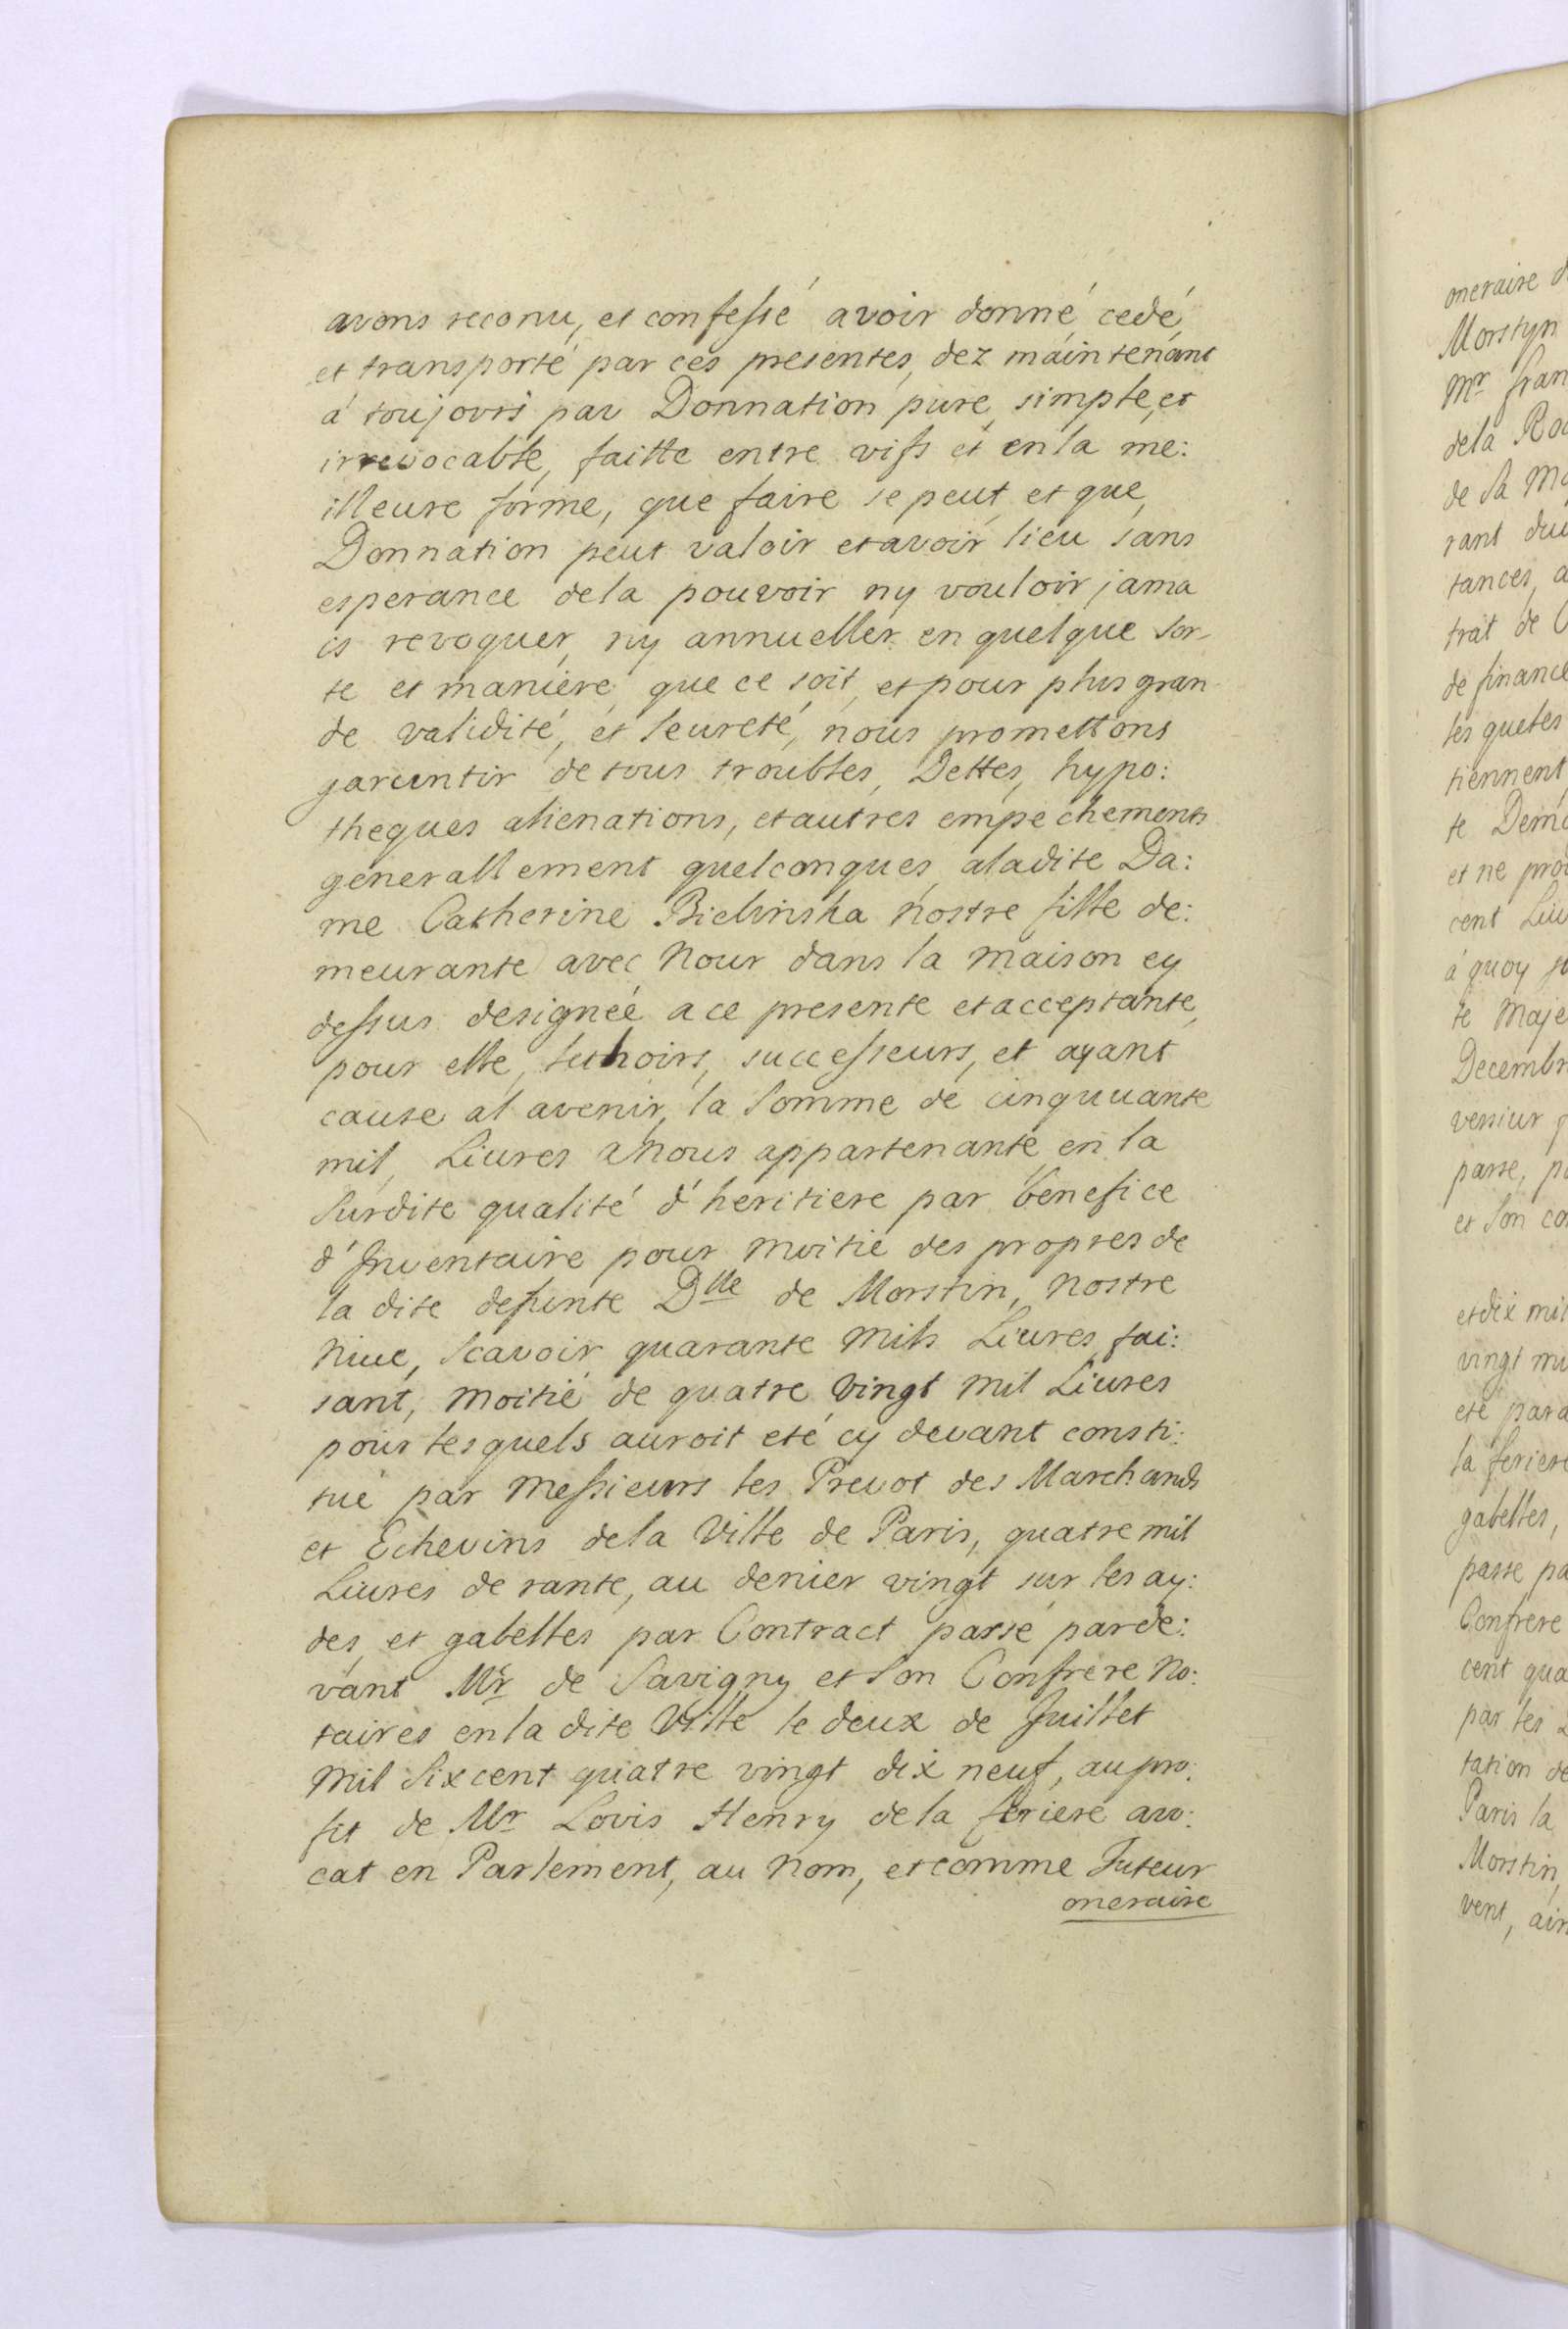 avons reconu, et confessé avoir donné, cedé,
et transporté par ces presentes, dez maintenant
á toujours par Donnation pure, simple, et
irrevocable, faitte entre vifs et en la me:
illeure forme, que faire se peut, et que,
Donnation peut valoir et avoir lieu sans
esperance dela pouvoir ny vouloir jama
is revoquer, ny annueller en quelque sor-
te et maniere que ce soit, et pour plus gran
de validité, et seureté, nous promettons
garuntir de tous troubles, Dettes, hypo:
theques alienations, et autres empechements
generallement quelconques, aladite Da:
me Catherine Bielinska nostre fille de:
meurante avec Nour dans la maison cy
dessus designeé a ce presente et acceptante,
pour elle, hoirs, successeurs, et ayant
cause al avenir, la Somme de cinquuante
mil, Liures a nous appartenante en la
Surdite qualité d'heritiere par benefice
d'Inventaire pour moitié des propres de
la dite defunte Dlle de Morstin, nostre
Niuc, Scavoir quarante mils Liures, fai:
sant, moitié de quatre vingt mil Liures
pour lesquels auroit eté cy devant consti:
tué par Messieurs les Prevot des Marchands
et Echevins dela Ville de Paris, quatre mil
Liures de rante, au denier vingt sur les ay:
des, et gabelles par Contract passé parde:
vant Mr de Savigny et son Confrere No:
taires en la dite Ville le deux de Juillet
Mil Six cent quatre vingt dix neuf, au pro:
fit de Mr Lovis Henry dela feriere avo:
cat en Parlement, au Nom, et comme Tuteur
oneraire
oneraire
Morstyn
Mr fran
dela
de Sa
rant
tances,
trat de
de finance
les queles
tiennent
te
et ne
cent
á quoy
te Maje
Decembr
passe,
et Son
et dix mil
vingt
eté
la feriere
gabelles,
passe
Confrere
cent qua
par les
tation de
Paris la
Morstin,
vent,